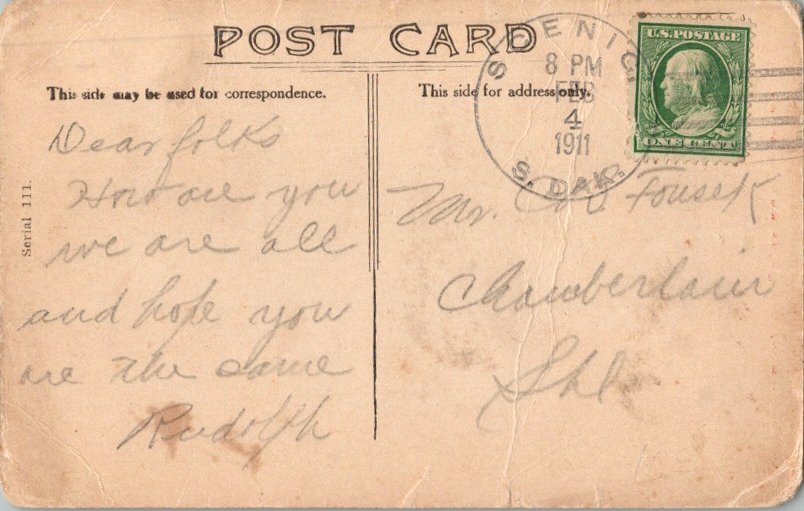 POST CARD
This side may be used for correspondence.
This side for address only.
SCENIC
8 PM
FEB
4
1911
S. DAK.
U.S. POSTAGE
ONE CENT
Serial 111.
Dear folks
How are you
we are all
and hope you
are the same
Rudolph
Mr. Fousek
Chamberlain